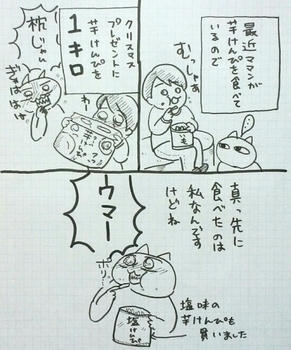 最近ママンが
芋けんぴを食べて
いるので
むっしゃぁ
クリスマス
プレゼントに
芋けんぴを
1キロ
わー
枕じゃん
ぎゃはははは
真っ先に
食べたのは
私なんです
けどね
ウマー
ポリ
塩
けんぴ
塩味の
芋けんぴも
買いました